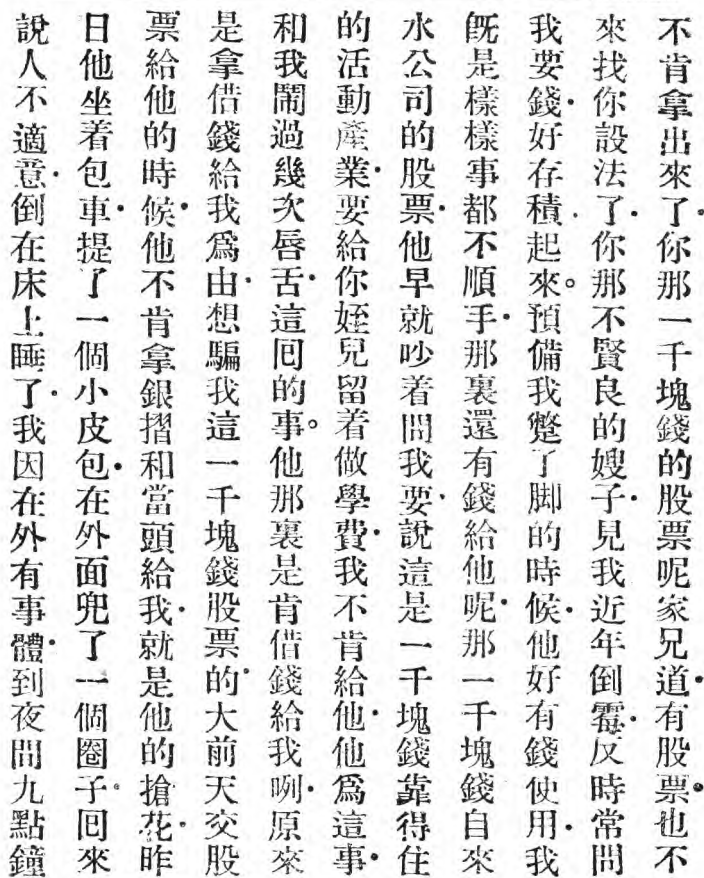 不肯拿出來了．你那一千塊錢的股票呢家兄道．有股票．也不
來找你設法了．你那不賢良的嫂子．見我近年倒霉．反時常問
我要錢．好存積．起來。預備我蹩了脚的時候．他好有錢使用．我
旣是樣樣事都不順手．那裏還有錢給他呢．那一千塊錢自來
水公司的股票．他早就吵着問我要．說這是一千塊錢靠得住
的活動產業．要給你姪兒留着做學費．我不肯給他．他爲這事．
和我鬧過幾次唇舌．這囘的事。他那裏是肯借錢給我咧．原來
是拿借錢給我爲由．想騙我這一千塊錢股票的．大前天交股
票給他的時候．他不肯拿銀摺和當頭給我．就是他的搶花．昨
日他坐着包車．提了一個小皮包．在外面兜了一個圈子。囘來
說人不適意．倒在床上睡了．我因在外有事體．到夜間九點鐘